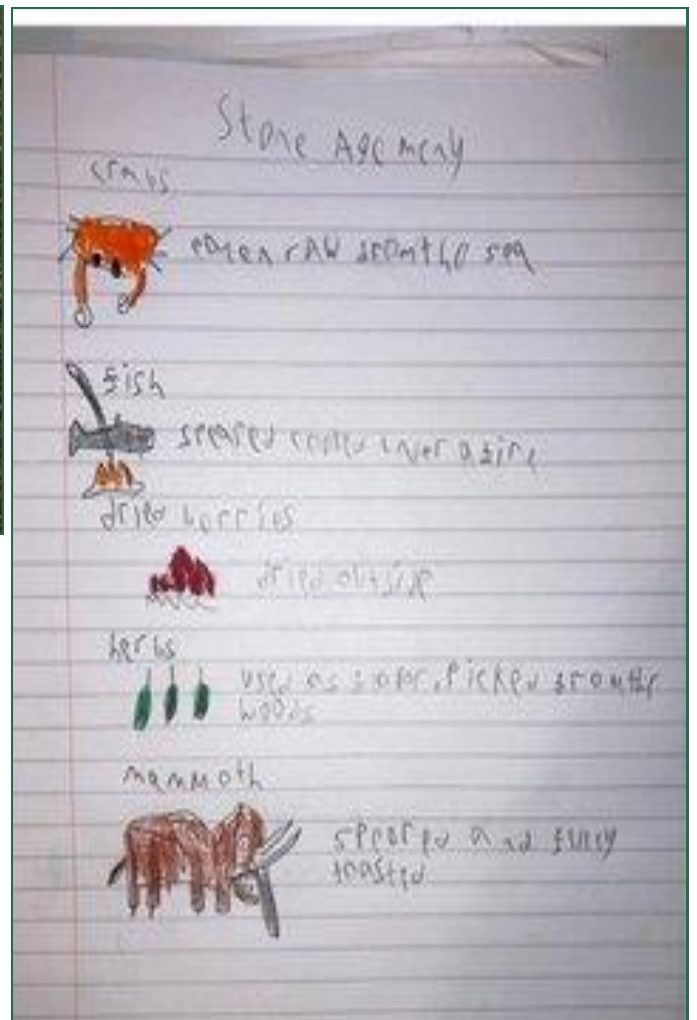 Stone Age Meny
crabs
eaten raw from the sea
fish
speared cooked over a fire
dried berries
dried outside
herbs
used as flavor. Picked from the
woods
mammoth
speared and fully
roasted